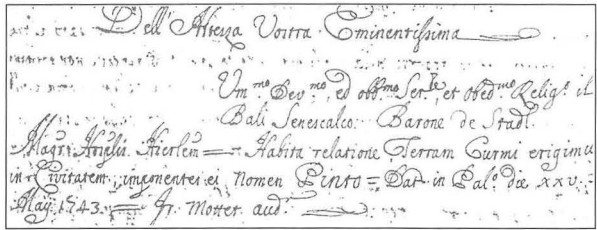 Dell' Altezza Vostra Eminentissima
Um.mo Dev.mo, ed obb.mo Ser.re, et obed.mo Relig.o il
Bali Senescalco. Barone de Stadl.
Habita relatione Terram Curmi erigimus
in Civitatem, imponentes ei Nomen Pinto = Dat. in Pal.o die XXV.
Maij 1743. = Fr. Mottet aud.r